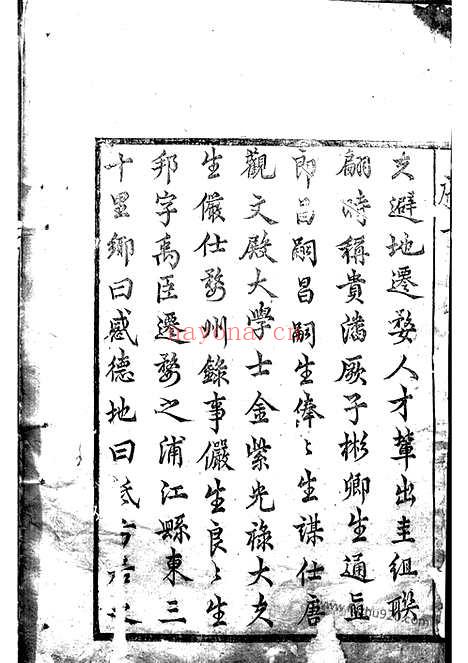 序
夫避地遷婺人才輩出圭組聯
翩時稱貴滿厥子彬卿生通直
郎昌嗣昌嗣生俸〻生謀仕唐
觀文殿大學士金紫光祿大夫
生儼仕婺州錄事儼生良〻生
邦字禹臣遷婺之浦江縣東三
十里鄉曰感德地曰
nayona.cn